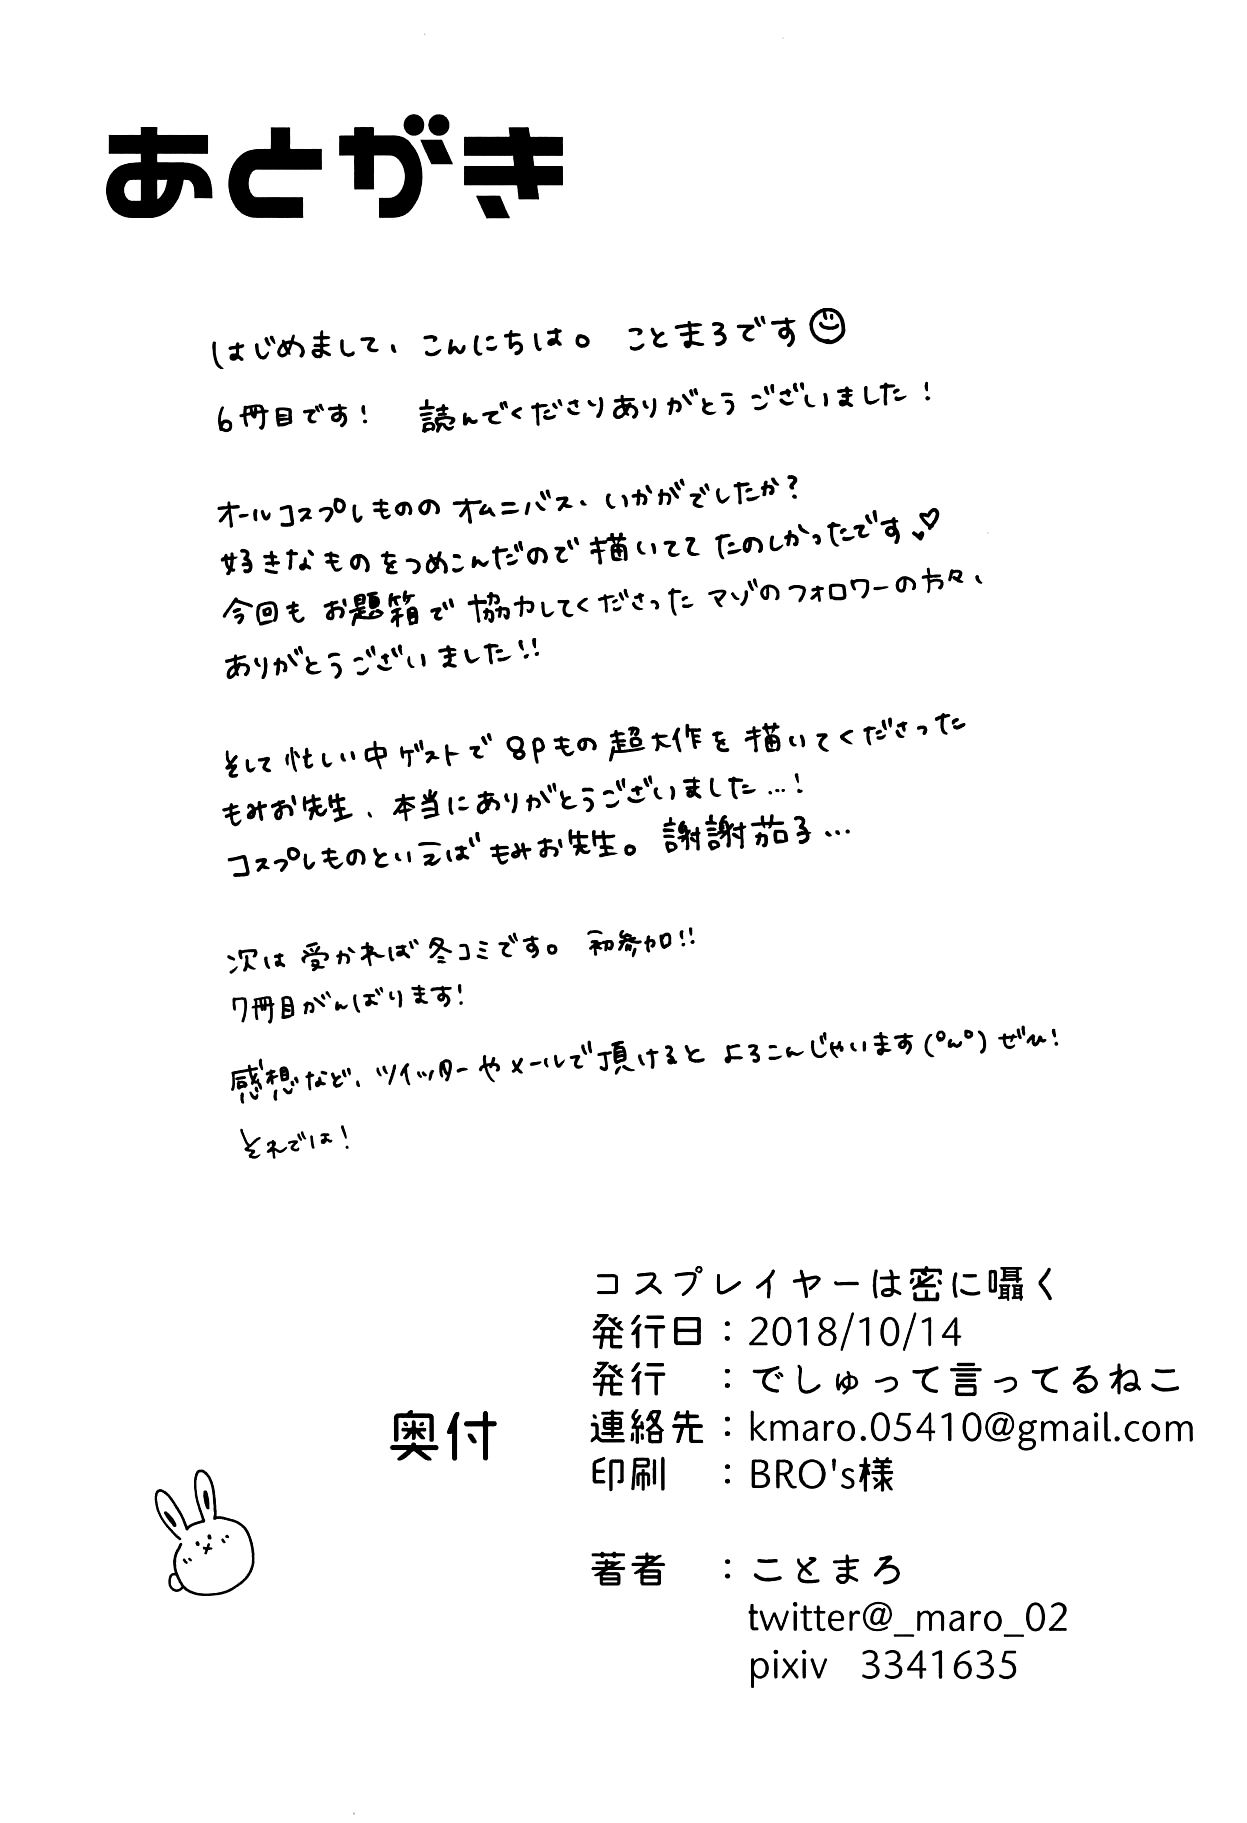 あとがき
はじめまして、こんにちは。 ことまろです
6冊目です! 読んでくださりありがとうございました!
オールコスプレもののオムニバス、いかがでしたか?
好きなものをつめこんだので描いてて たのしかったです♡
今回も お題箱で 協力してくださった マゾのフォロワーの方々、
ありがとうございました!!
そして 忙しい中 ゲストで 8pもの 超大作を 描いてくださった
もみお先生、本当にありがとうございました…!
コスプレものといえば もみお先生。謝謝茄子…
次は 受かれば 冬コミです。 初参加!!
7冊目がんばります!
感想など、ツイッターやメールで頂けると よろこんじゃいます(°ω°) ぜひ!
それでは!
コスプレイヤーは密に囁く
発行日：2018/10/14
発行 ：でしゅって言ってるねこ
奥付
連絡先：kmaro.05410@gmail.com
印刷 ：BRO's様
著者 ：ことまろ
twitter@_maro_02
pixiv 3341635